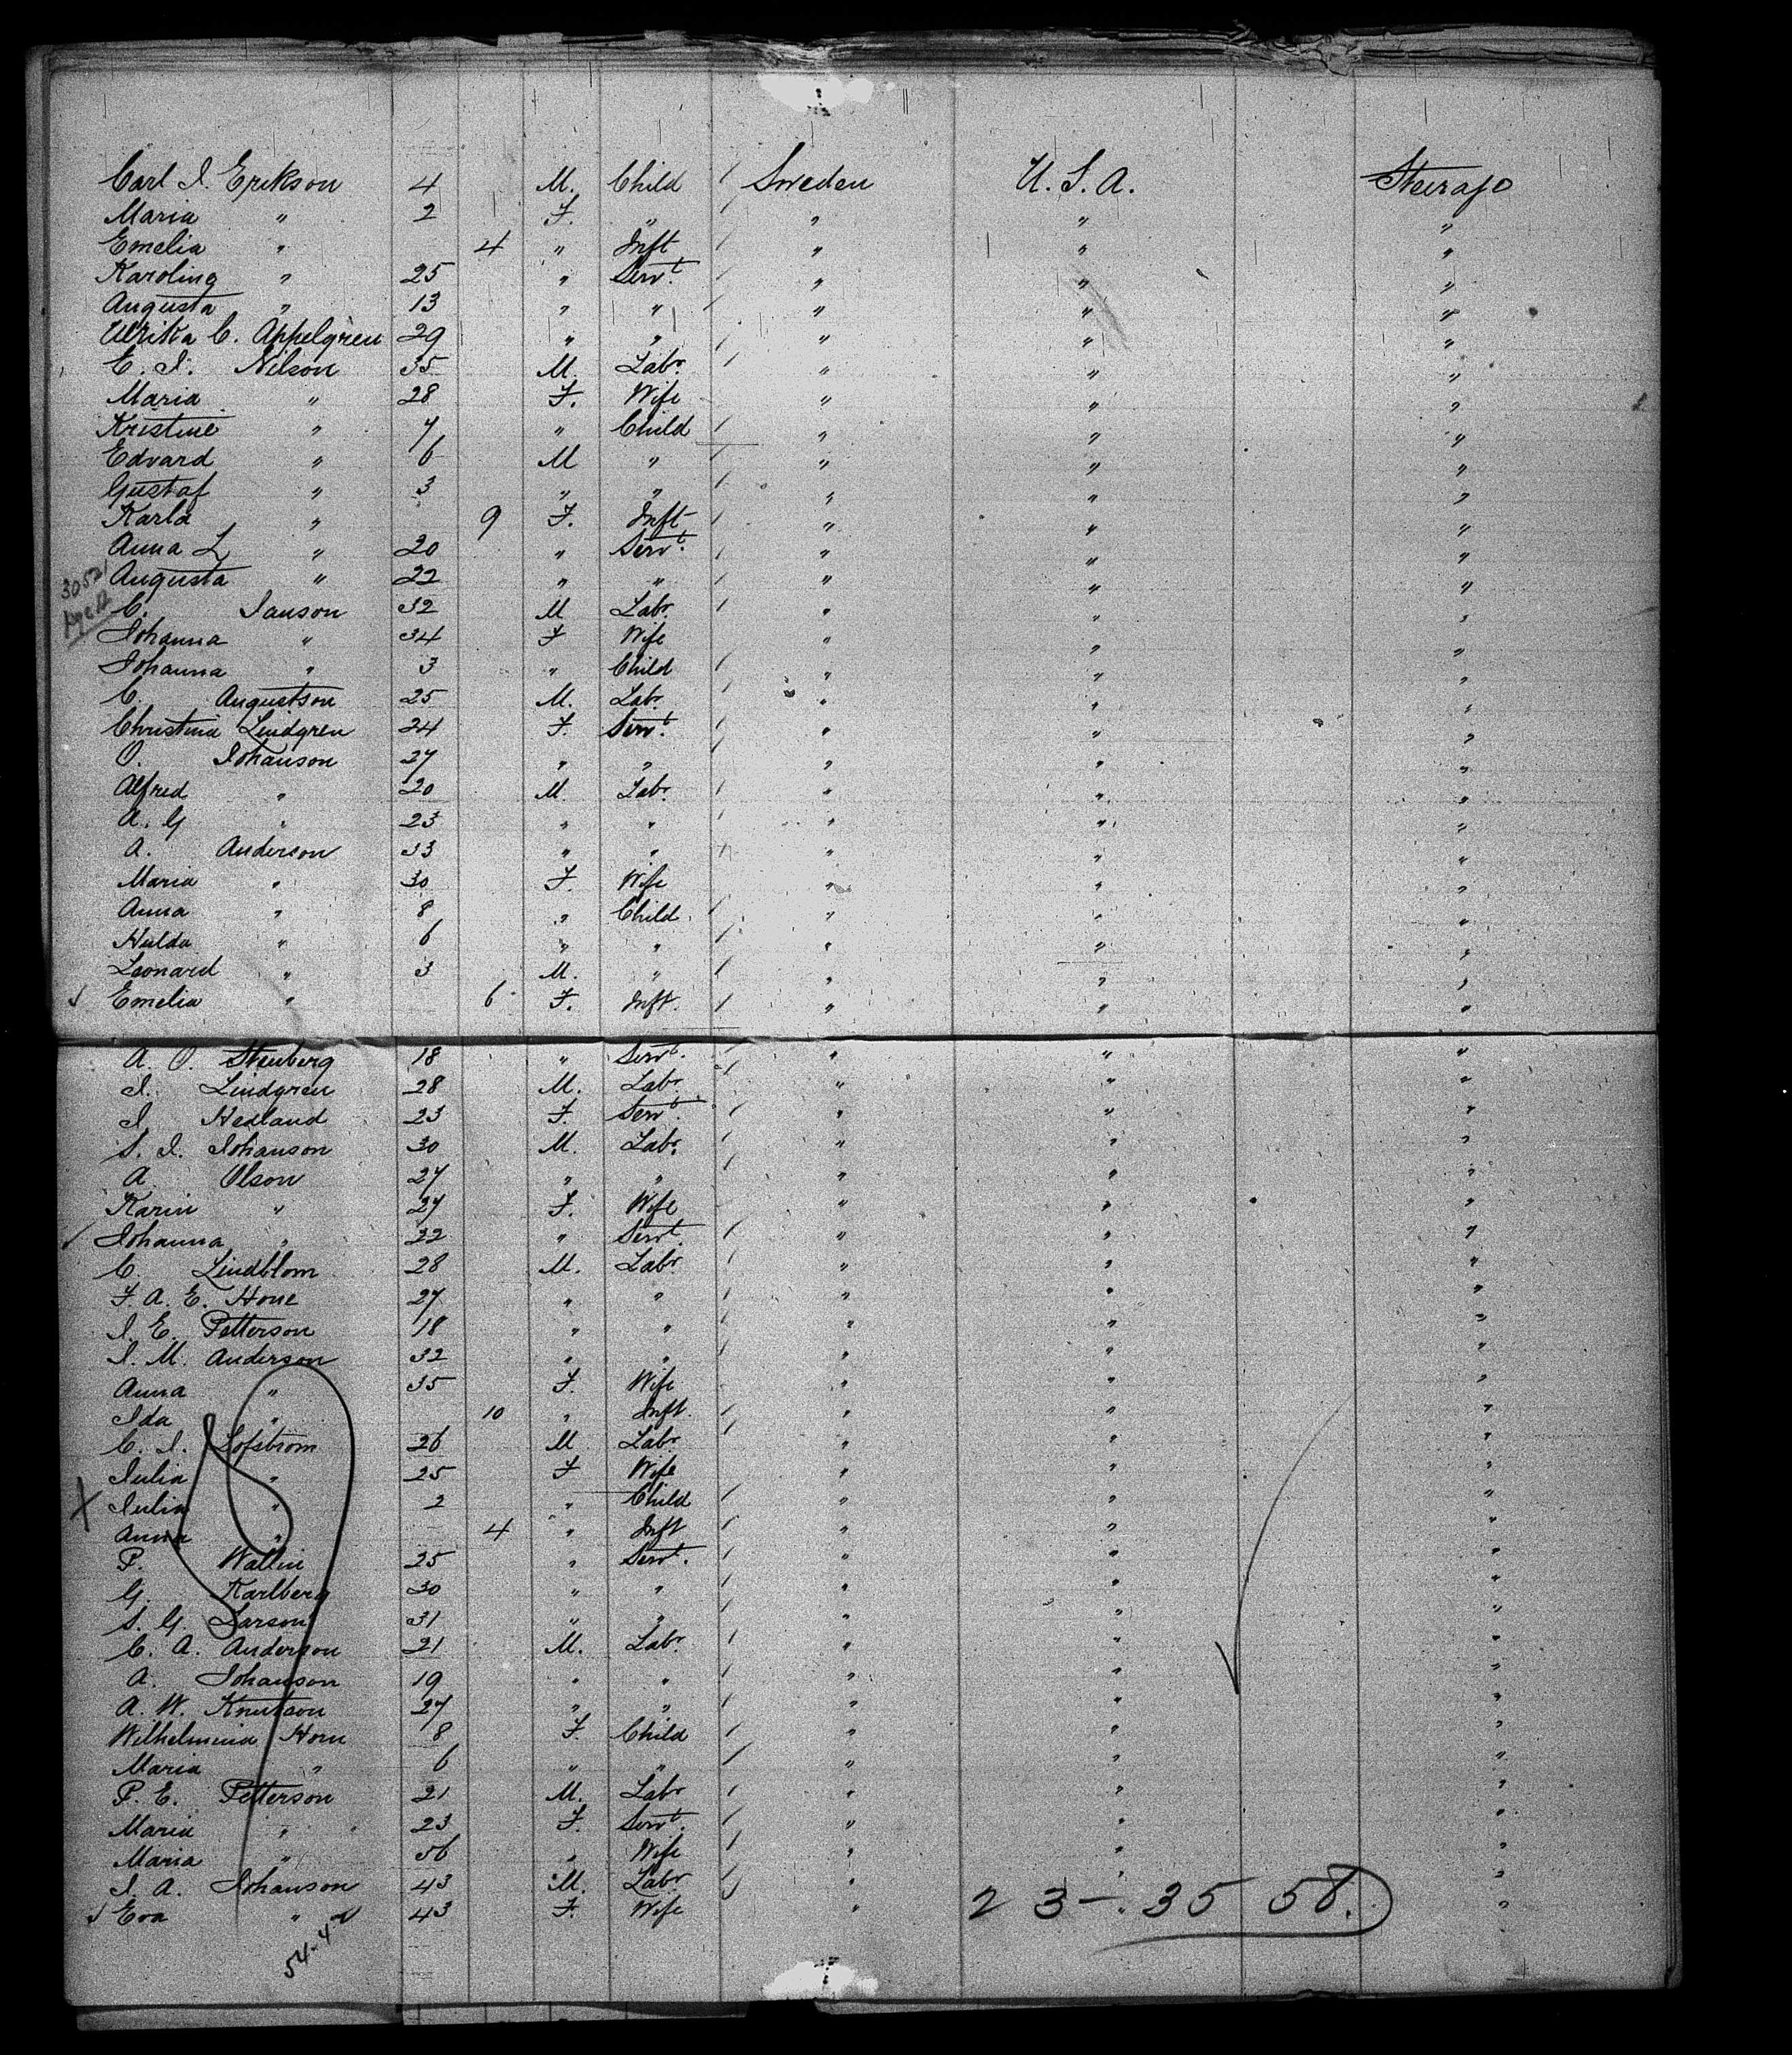 Carl I. Erikson 4 M. Child Sweden U.S.A. Steerage
Maria " 2 F. " " " "
Emelia " 4 " Inft " " "
Karolina " 25 " Servt. " " "
Augusta " 13 " " " " "
Ulrika C. Appelgren 29 " " " " "
E. I. Nilson 35 M. Labr. " " "
Maria " 28 F. Wife " " "
Kristine " 7 " Child " " "
Edvard " 6 M " " " "
Gustaf " 3 " " " " "
Karla " 9 F. Inft " " "
Anna L " 20 " Servt. " " "
Augusta " 22 " " " " "
30521
C. Janson 32 M Labr. " " "
Johanna " 34 F Wife " " "
Johanna " 3 " Child " " "
C. Augustson 25 M. Labr. " " "
Christina Lindgren 24 F. Servt. " " "
O. Johanson 27 " " " " "
Alfred " 20 M. Labr. " " "
A. G " 23 " " " " "
A. Anderson 33 " " " " "
Maria " 30 F. Wife " " "
Anna " 8 " Child " " "
Hulda " 6 " " " " "
Leonard " 3 M. " " " "
Emelia " 6 F. Inft. " " "
A. O. Stenberg 18 " Servt. " " "
I. Lindgren 28 M. Labr. " " "
I Hedland 23 F. Servt. " " "
S. I. Johanson 30 M. Labr. " " "
A. Olson 27 " " " " "
Karin " 27 F. Wife " " "
Johanna " 22 " Servt. " " "
C. Lindblom 28 M. Labr. " " "
F. A. E. Hone 27 " " " " "
I. E. Petterson 18 " " " " "
I. M. Anderson 32 " " " " "
Anna " 35 F. Wife " " "
Ida " 10 " Inft. " " "
C. I. Lofstrom 26 M Labr. " " "
Julia " 25 F Wife " " "
Julia " 2 " Child " " "
Anna " 4 " Inft " " "
P. Wallin 25 " Servt. " " "
G. Karlberg 30 " " " " "
S. G. Larson 31 " " " " "
C. A. Anderson 21 M. Labr. " " "
A. Johanson 19 " " " " "
A. W. Knutson 27 " " " " "
Wilhelmina Horn 8 F. Child " " "
Maria " 6 " " " " "
P. E. Petterson 21 M. Labr " " "
Maria " 23 F. Servt. " " "
Maria " 56 " Wife " " "
I. A. Johanson 43 M. Labr " " "
Eva " 43 F. Wife " " "
23 - 35 58.
54-4